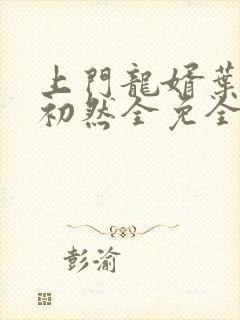 上門龍婿葉
初然全免全
彭渝